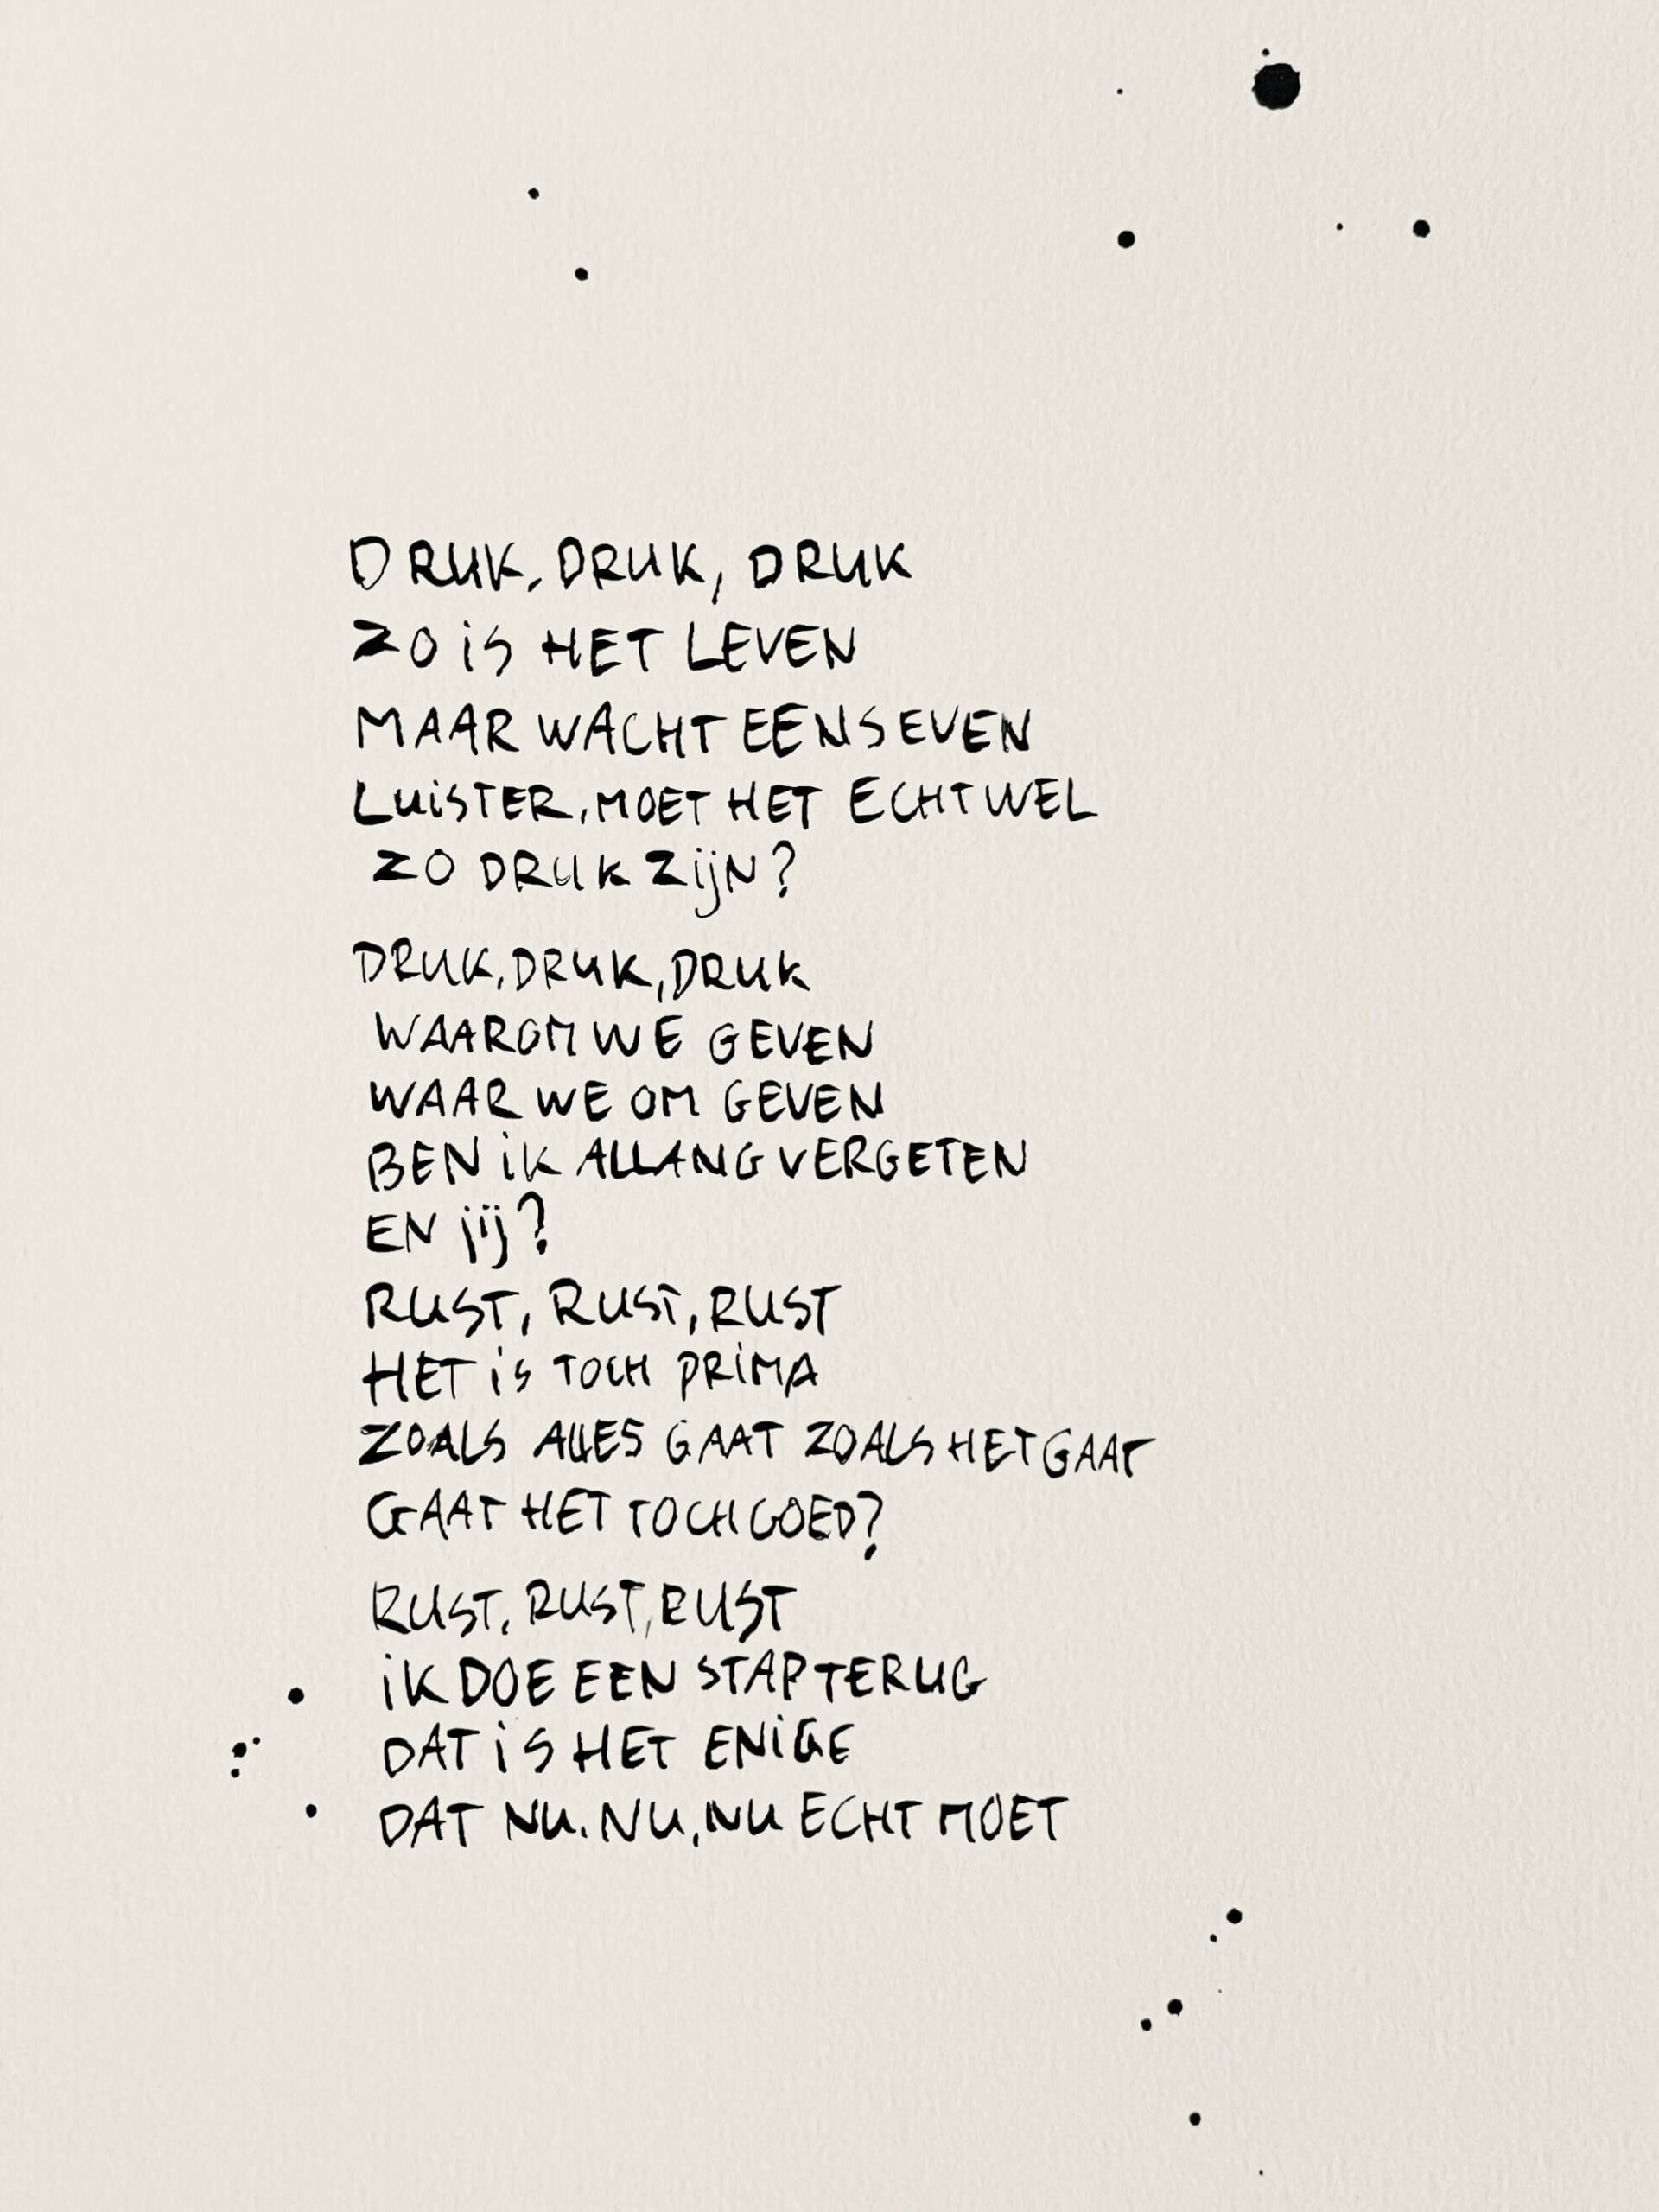 DRUK, DRUK, DRUK
ZO iS HET LEVEN
MAAR WACHT EENS EVEN
LUiSTER, MOET HET ECHT WEL
ZO DRUK ZijN?
DRUK, DRUK, DRUK
WAAROM WE GEVEN
WAAR WE OM GEVEN
BEN iK ALLANG VERGETEN
EN jij?
RUST, RUST, RUST
HET iS TOCH PRiMA
ZOALS ALLES GAAT ZOALS HET GAAT
GAAT HET TOCH GOED?
RUST, RUST, RUST
iK DOE EEN STAP TERUG
DAT iS HET ENiGE
DAT NU, NU, NU ECHT MOET